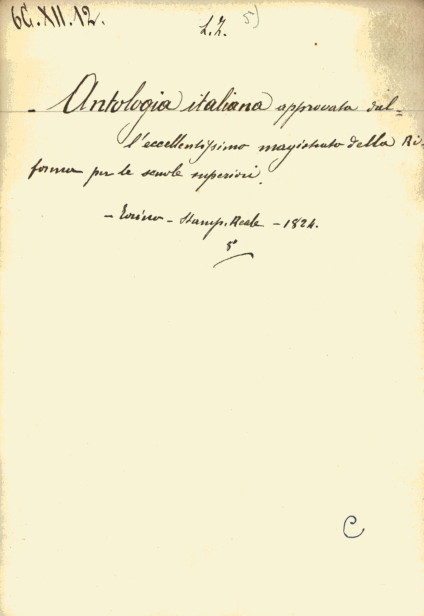 6C.XII.12.
L.Z. 5)
- Antologia italiana approvata dal=
l'eccellentissimo magistrato della Ri=
forma per le scuole superiori.
- Torino - Stamp. Reale - 1824.
8°
C